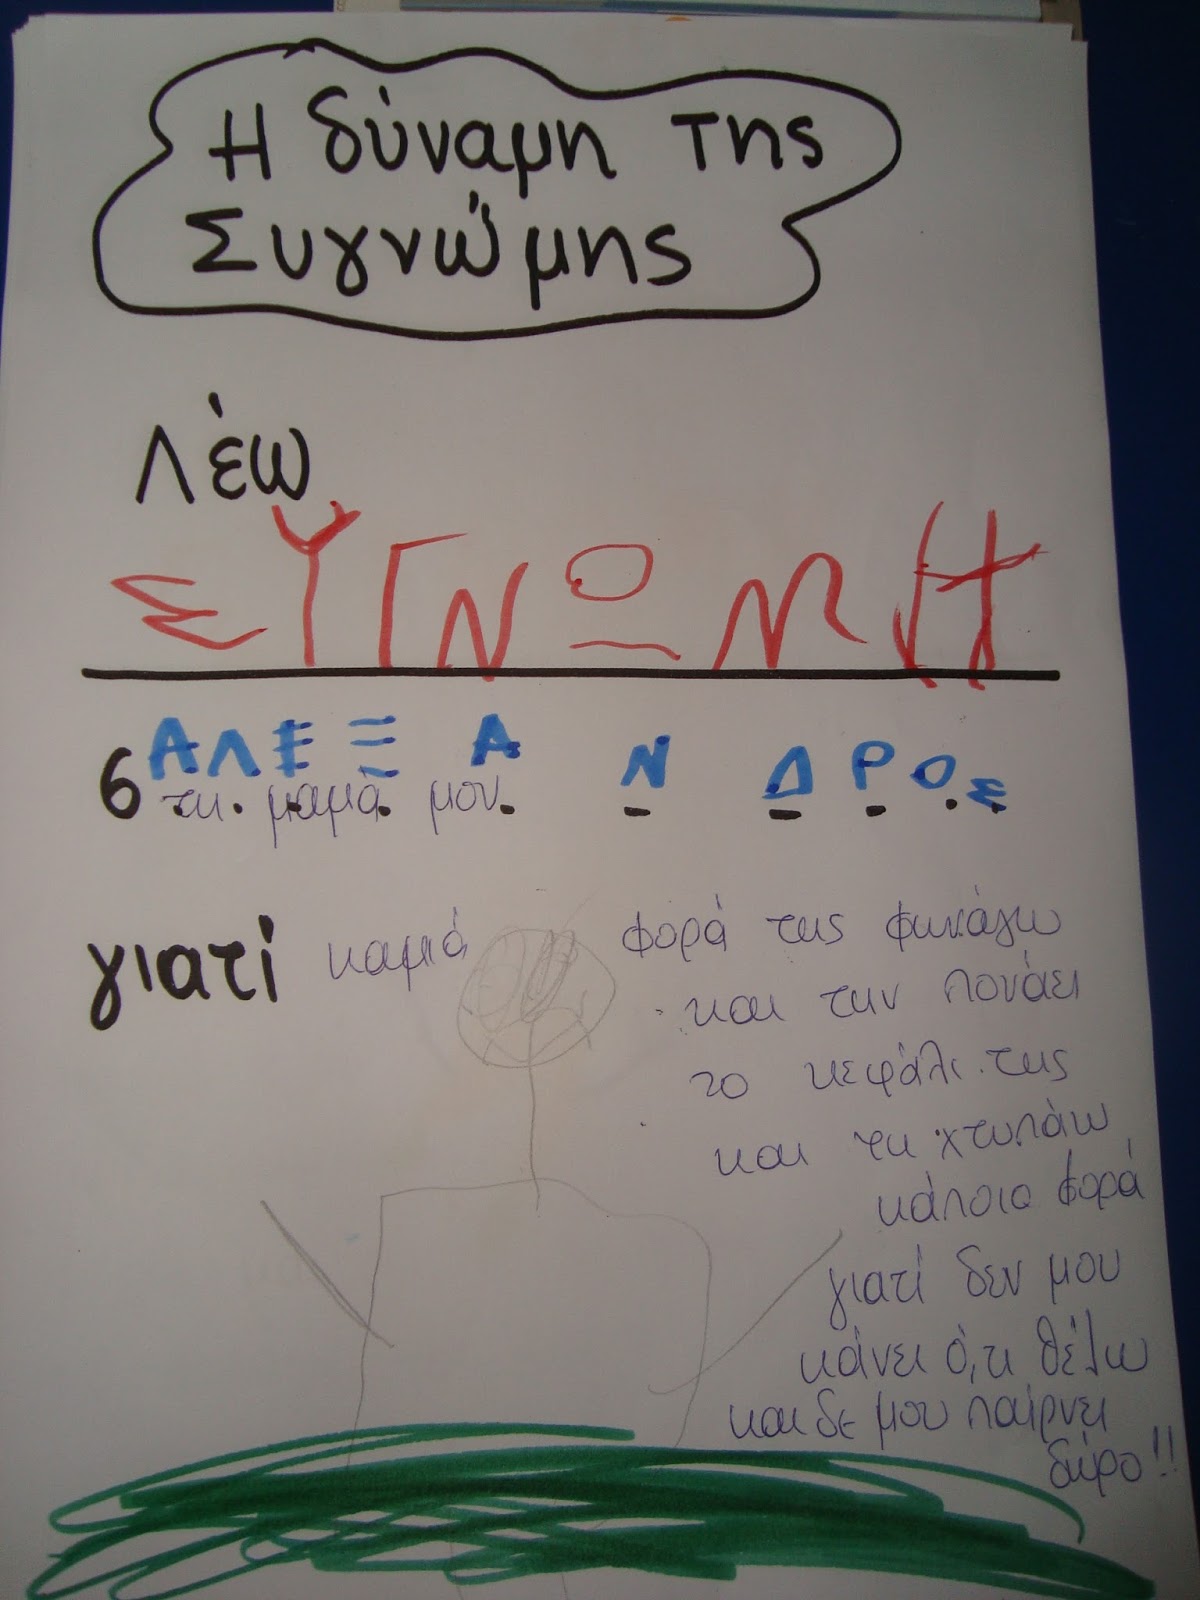 Η δύναμη της
Συγνώμης
Λέω
ΣΥΓΝΩΜΗ
ΑΛΕΞΑΝΔΡΟΣ
σ τη μαμά μου
γιατί καμιά φορά της φωνάζω
και την πονάει
το κεφάλι της
και τη χτυπάω
κάποια φορά
γιατί δεν μου
κάνει ό,τι θέλω
και δε μου παίρνει
δώρο!!